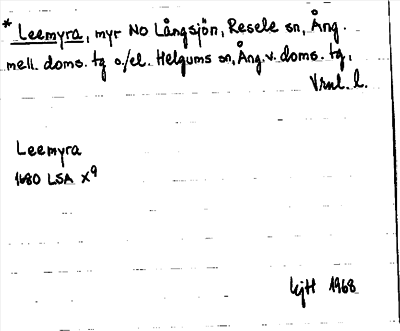 * Leemyra, myr NO Långsjön, Resele sn, Ång.
mell. doms. tg o./el. Helgums sn, Ång. v. doms. tg,
Vrnl. l.
Leemyra
1680 LSA X9